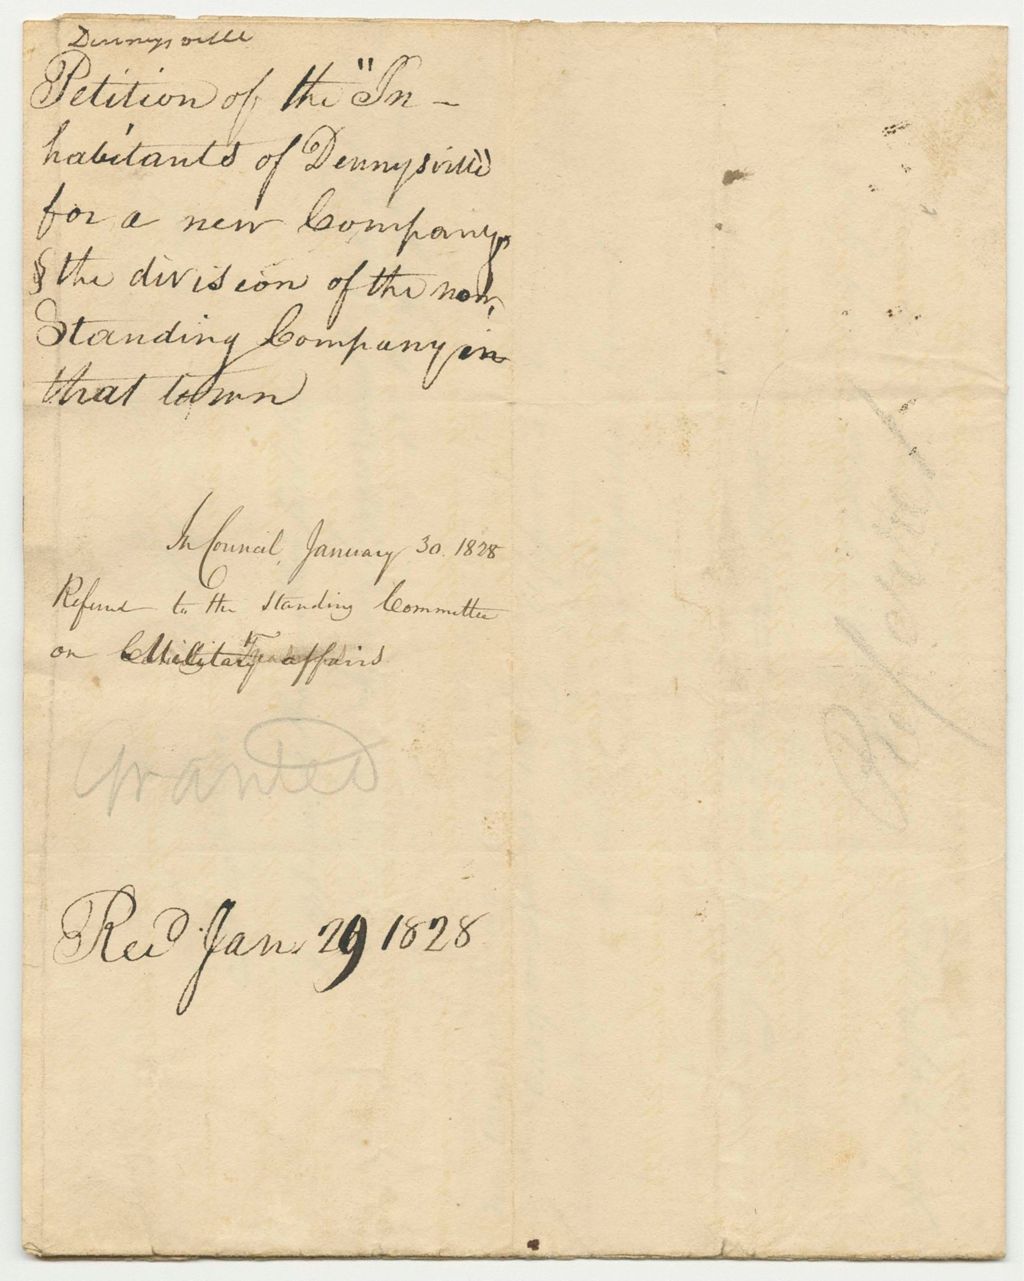 Dennysville
Petition of the "In-
habitants of Dennysville"
for a new Company,
& the division of the now
Standing Company in
that town
In Council, January 30. 1828
Referred to the Standing Committee
on Military affairs
Granted
Recd. Jan. 29 1828